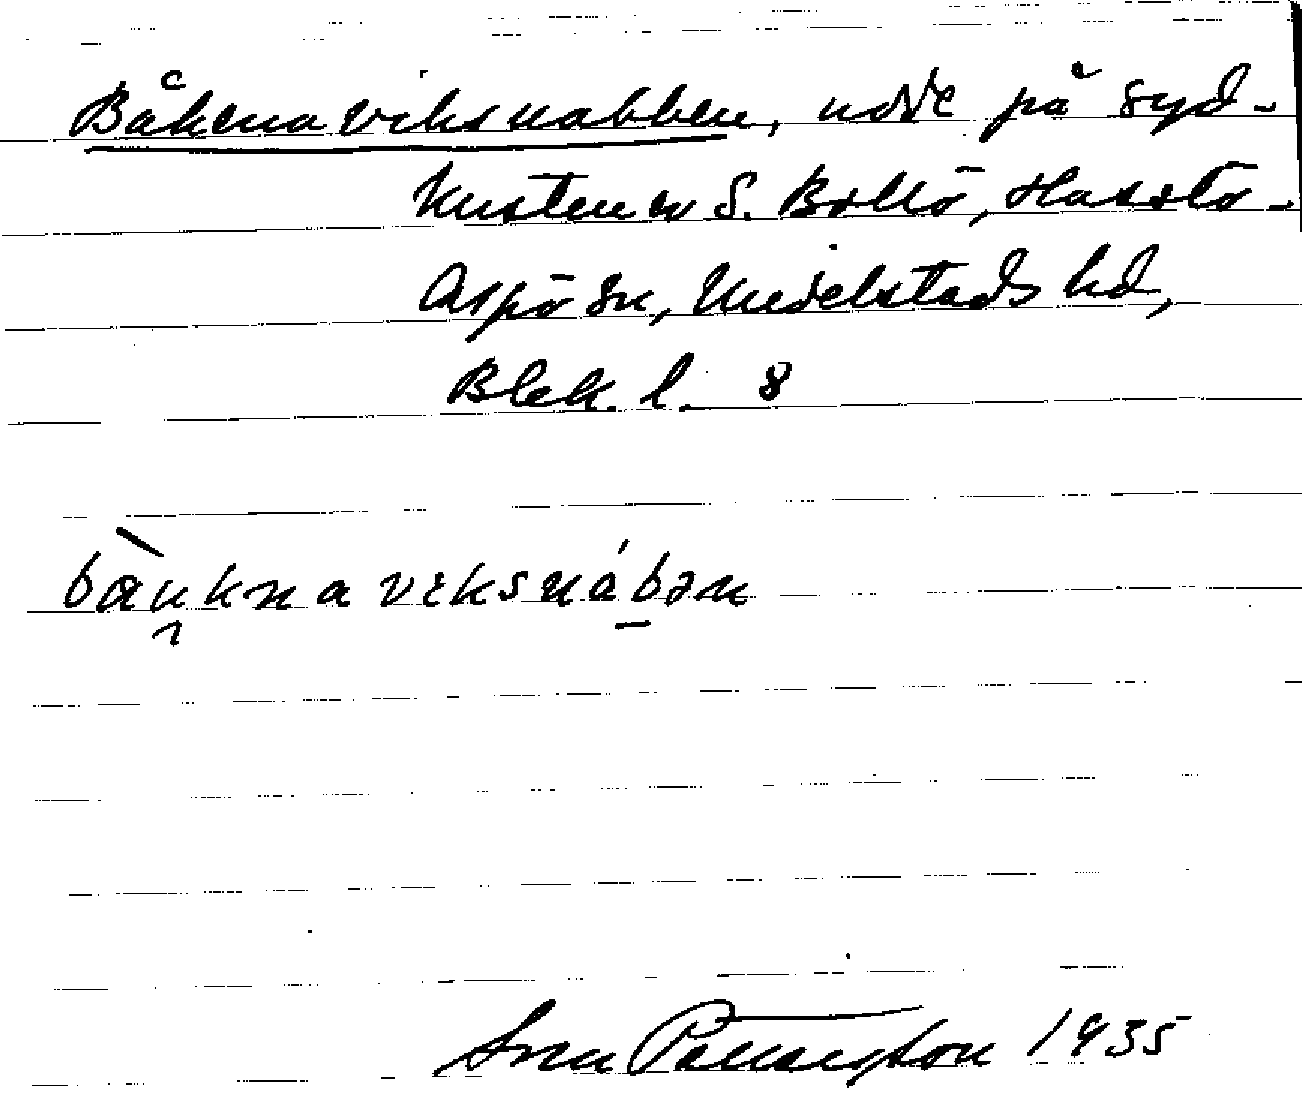 Båkenaviksnabben, udde på syd-
kusten av S. Bollö, Hasslö-
Aspö sn, Medelstads hd,
Blek. l. 8
bàu̯knaviksnáb̠ən
1935